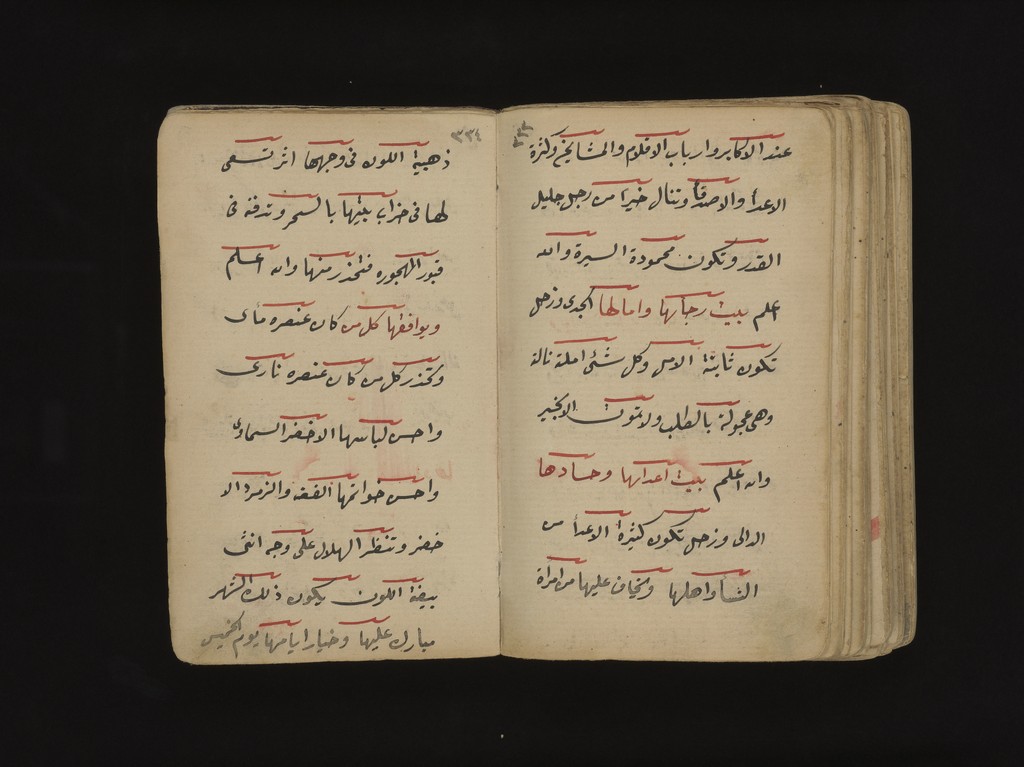 ٣٢٣
عند الاكابر وارباب الاقلام والمشايخ وكثرة
الاعدأ والاصدقأ وتنال خيرا من رجل جليل
القدر وتكون محمودة السيرة والله
اعلم بيت رجائها وامالها الجدى وزحل
تكون ثابتة الامل وكل شئ املة نالة
وهى عجولة بالطلب ولا تموت الا بخير
والله اعلم بيت اعدائها وحسادها
الدالى وزحل تكون كثيرة الاعدأ من
النسأ واهلها ويخاف عليها من امراة
٣٢٤
ذهبية اللون فى وجهها اثر تسعى
لها فى خراب بيتها بالسحر وتدفنه فى
قبور المهجوره فتحذر منها والله اعلم
ويوافقها كل من كان عنصره مائى
وتحذر كل من كان عنصره نارى
واحسن لباسها الاخضر السماوى
واحسن خواتمها الفضه والزمرد الا
خضر وتنظر الهلال على وجه انثى
بيضة اللون يكون ذلك الشهر
مبارك عليها وخيار ايامها يوم الخميس